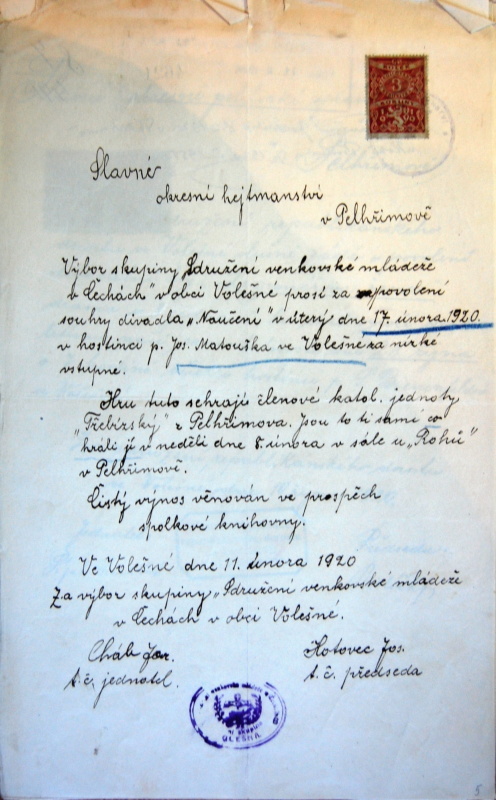 3
Slavné
okresní hejtmanství
v Pelhřimově
Výbor skupiny „Sdružení venkovské mládeže
v Čechách" v obci Volešné prosí za povolení
souhry divadla „Naučení" v úterý dne 17. února 1920.
v hostinci p. Jos. Matouška ve Volešné za nízké
vstupné.
Hru tuto sehrají členové katol. jednoty
„Třebízský" z Pelhřimova. Jsou to ti samí co
hráli ji v neděli dne 8. února v sále u „Rohů"
v Pelhřimově.
Čistý výnos věnován ve prospěch
spolkové knihovny.
Ve Volešné dne 11. února 1920
Za výbor skupiny „Sdružení venkovské mládeže
v Čechách v obci Volešné.
Cháb Jar.
t. č. jednatel.
Hotovec Jos.
t. č. předseda
5